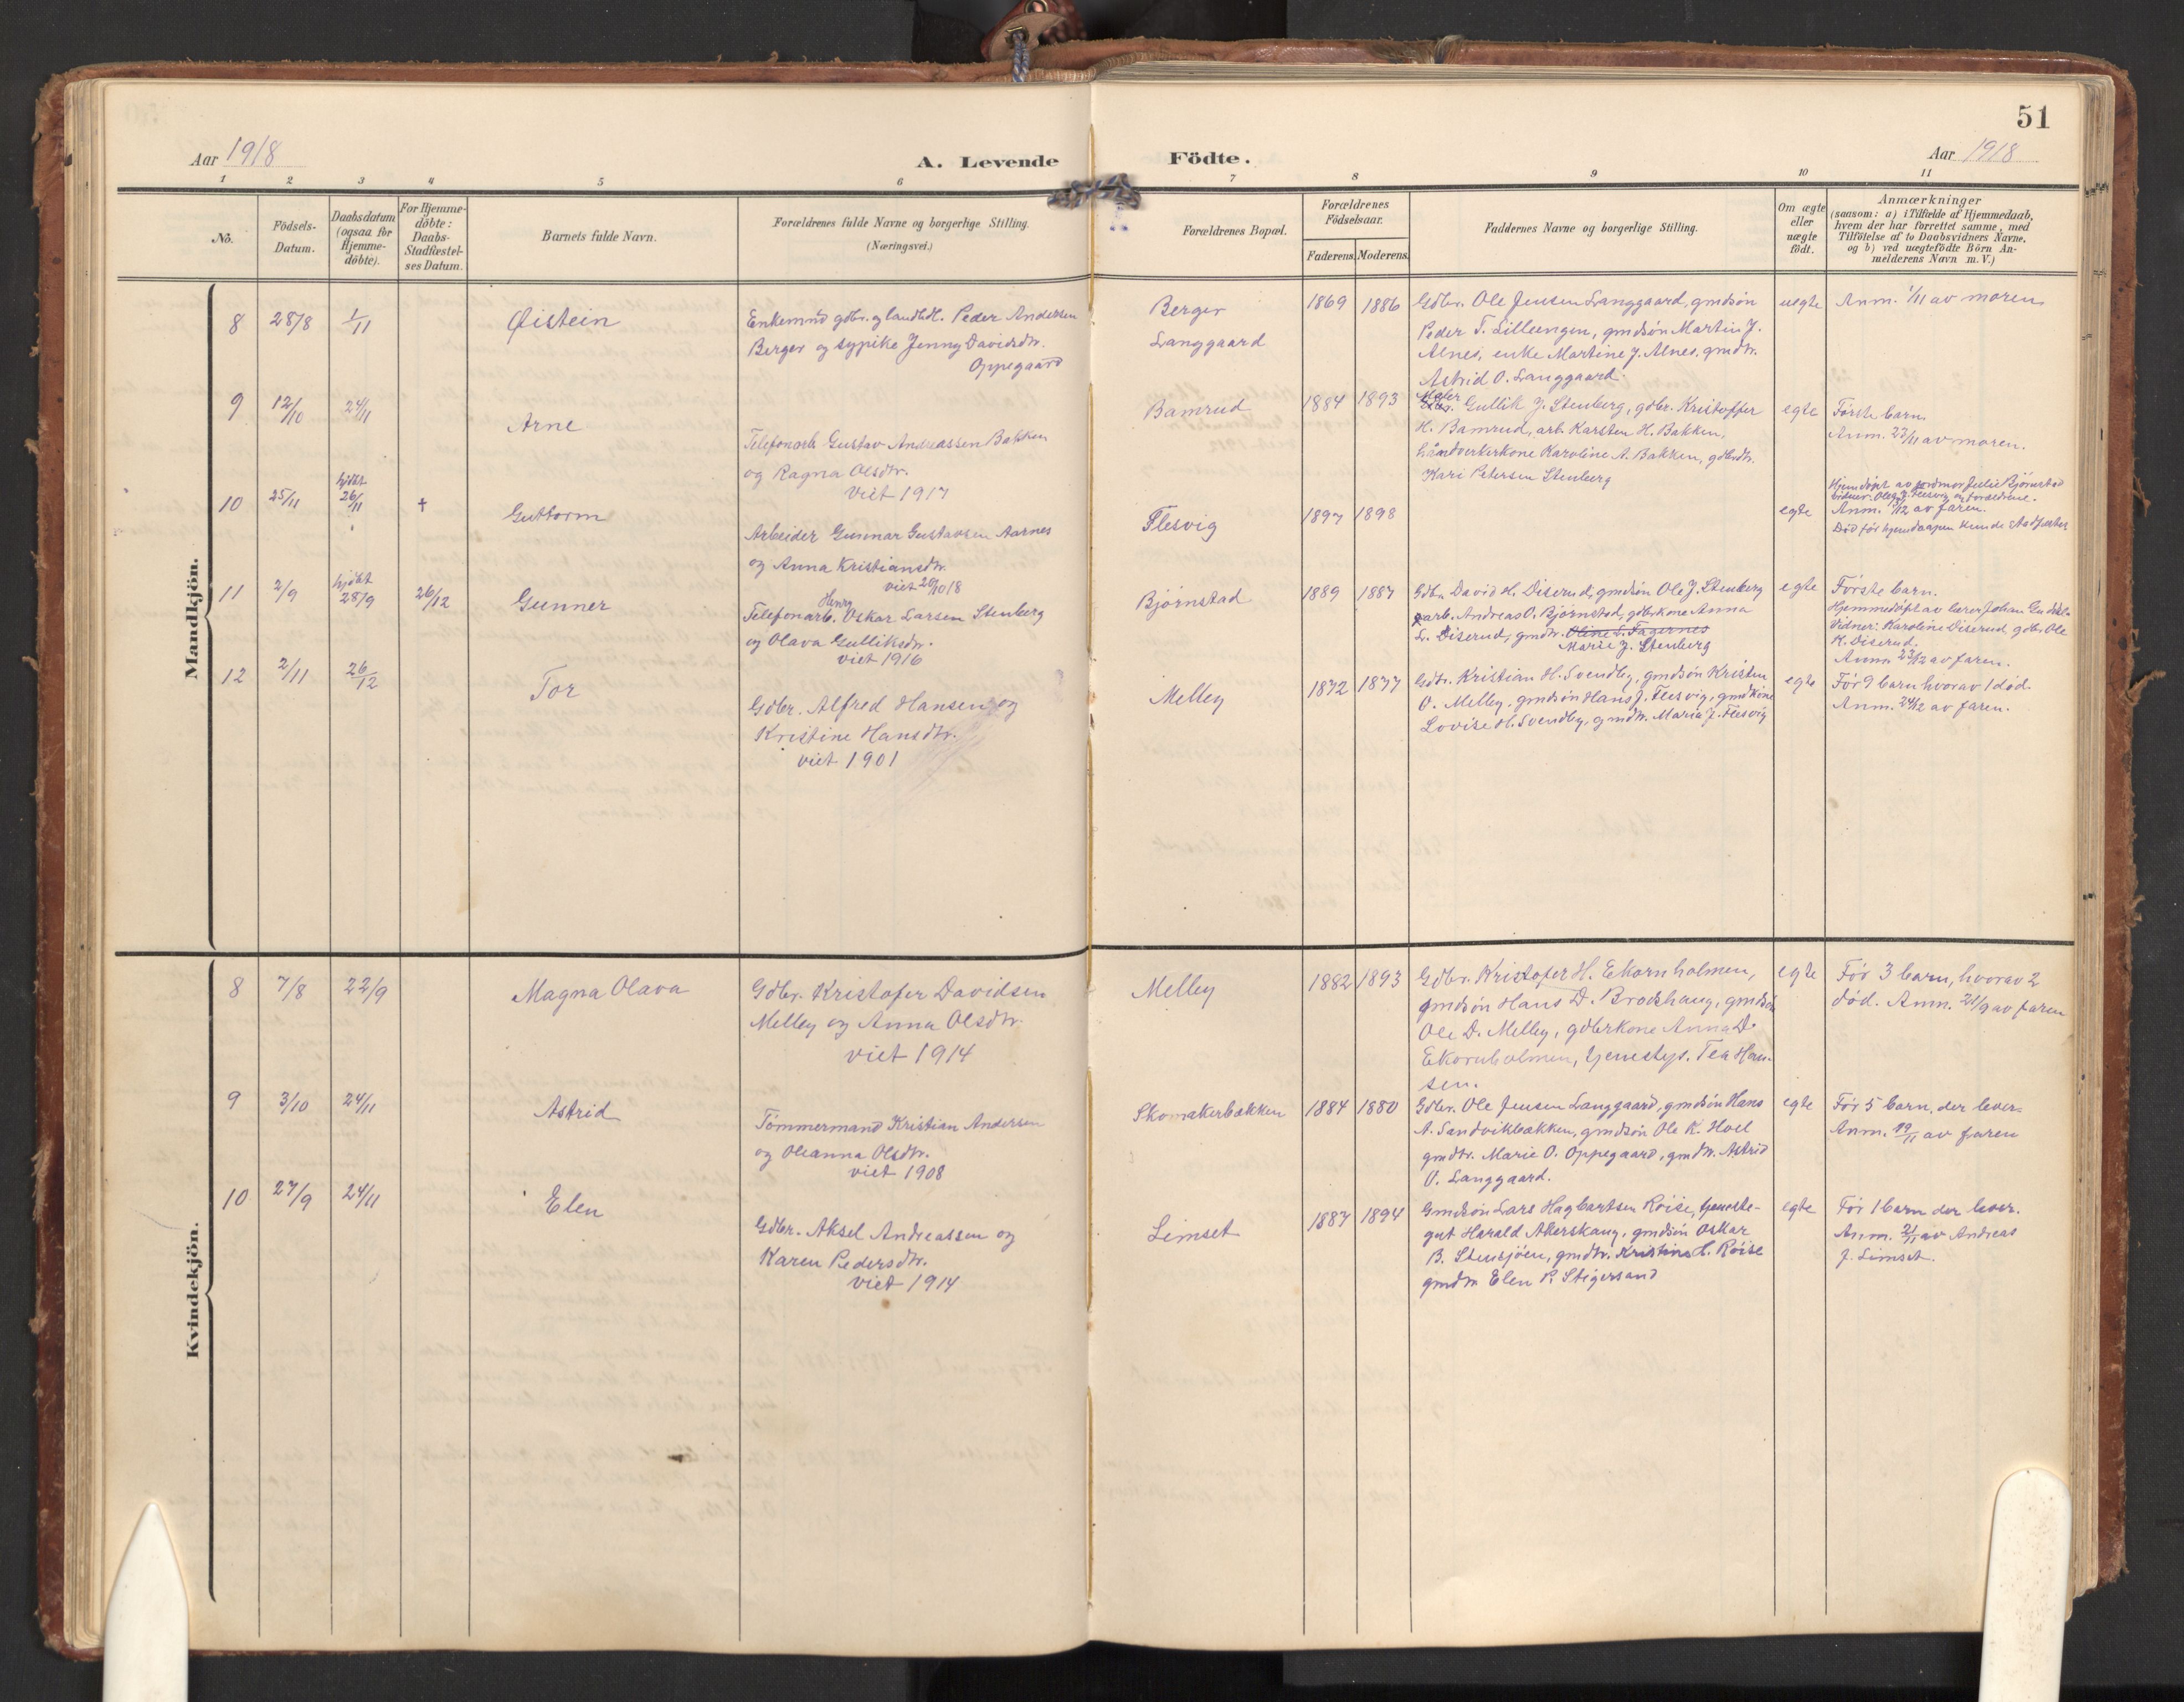 51
Aar 1918
A. Levende Födte.
Aar 1918
1 2 3 4 5 6 7 8 9 10 11
No.
Födsels-Datum.
Daabsdatum (ogsaa for Hjemme-döbte).
For Hjemme-döbte: Daabs-Stadfæstel-ses Datum.
Barnets fulde Navn.
Forældrenes fulde Navne og borgerlige Stilling.
(Næringsvei.)
Forældrenes Bopæl.
Forældrenes Födselsaar.
Faderens. Moderens.
Faddernes Navne og borgerlige Stilling.
Om ægte eller uægte födt.
Anmærkninger
(saasom: a) i Tilfælde af Hjemmedaab,
hvem der har forrettet samme, med
Tilföielse af to Daabsvidners Navne,
og b) ved uægtefödte Börn An-
melderens Navn m. V.)
Mandkjön.
8 28/8 1/11 Øistein
Enkemnd gdbr. og landhdl. Peder Andersen
Berger og sypike Jenny Davidsdtr.
Oppegaard
Berger
Langgaard
1869 1886
Gdbr. Ole Jensen Langgaard, gmdsøn
Peder T. Lilleengen, gmdsøn Martin J.
Alnes, enke Martine J. Alnes, gmdtr.
Astrid O. Langgaard.
uegte
Anm. 1/11 av moren
9 12/10 24/11 Arne
Telefonarb. Gustav Andreassen Bakken
og Ragna Olsdtr.
viet 1917
Bamrud
1884 1893
Maler
Gullik J. Stenberg, gdbr. Kristoffer
H. Bamrud, arb. Karsten H. Bakken,
håndverkerkone Karoline A. Bakken, gdbrdtr.
Kari Petersen Stenberg
egte
Første barn.
Anm. 23/11 av moren.
10 25/11 hjdøpt 26/11 † Guttorm
Arbeider Gunnar Gustavsen Aarnes
og Anna Kristiansdtr.
viet 20/10 18
Flesvig
1897 1898
egte
Hjemdøpt av jordmor Julie Bjørnstad
vidner: Oleg J. Flesvig og forældrene.
Anm. /12 av faren.
Død før hjemdaapen kunde stadfæstes
11 2/9 hjdøpt 28/9 26/12 Gunner
Telefonarb. Henry Oskar Larsen Stenberg
og Olava Gulliksdtr.
viet 1916
Bjørnstad
1889 1887
Gdbr. David H. Diserud, gmdsøn Ole J. Stenberg
arb. Andreas O. Bjørnstad, gdbrkone Anna
L. Diserud, gmdtr. Oline L. Fagernes
Marie J. Stenberg
egte
Første barn.
Hjemmedøpt av lærer Johan
Vidner: Karoline Diserud, gdbr. Ole
K. Diserud.
Anm. 23/12 av faren.
12 2/11 26/12 Tor
Gdbr. Alfred Hansen og
Kristine Hansdtr.
viet 1901
Melley
1872 1877
Gdbr. Kristian H. Svendby, gmdsøn Kristen
O. Melley, gmdsøn Hans J. Flesvig, gmdkone
Lovise H. Svendby, gmdtr. Maria J. Flesvig
egte
Før 9 barn hvorav 1 død.
Anm. 24/12 av faren.
Kvindekjön.
8 7/8 22/9 Magna Olava
Gdbr. Kristofer Davidsen
Melley og Anna Olsdtr.
viet 1914
Melley
1882 1893
Gdbr. Kristofer H. Ekornholmen,
gmdsøn Hans D. Brodshaug, gmdsøn
Ole D. Melley, gdbrkone Anna D.
Ekornholmen, tjenestep. Tea Han-
sen.
egte
Før 3 barn, hvorav 2
død. Anm. 21/9 av faren
9 3/10 24/11 Astrid
Tømmermand Kristian Andersen
og Oleanna Olsdtr.
viet 1908
Skomakerbækken
1884 1880
Gdbr. Ole Jensen Langgaard, gmdsøn Hans
A. Sandvikbækken, gmdsøn Ole K. Hoel
gmdtr. Marie O. Oppegaard, gmdtr. Astrid
O. Langgaard.
egte
Før 5 barn, der lever.
Anm. 19/11 av faren
10 27/9 24/11 Elen
Gdbr. Aksel Andreassen og
Karen Pedersdtr.
viet 1914
Limset
1887 1894
Gmdsøn Lars Hagbartsen Røise, tjeneste-
gut Harald Akerskaug, gmdsøn Oskar
B. Stensjøen, gmdtr. Kristine L. Røise
gmdtr Elen P. Stigersand
egte
Før 1 barn der lever.
Anm. 21/11 av Andreas
J. Limset.